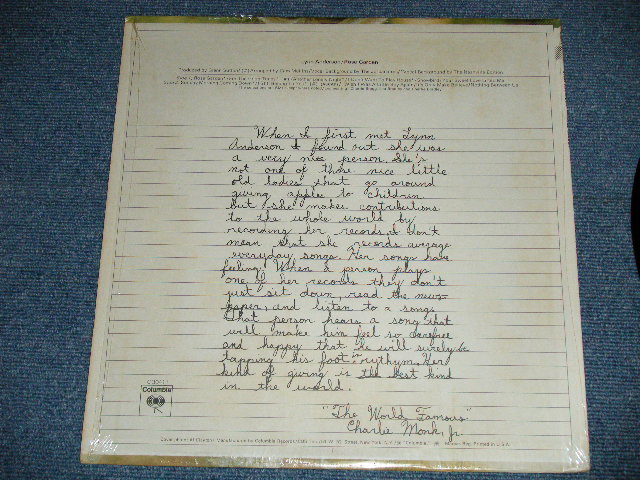 Lynn Anderson/Rose Garden
When I first met Lynn
Anderson I found out she was
a very nice person. She's
not one of those nice little
old ladies that go around
giving apples to children
but she makes contributions
to the whole world by
recording her records. I don't
mean that she records average
everyday songs. Her songs have
feeling! When a person plays
one of her records they don't
just sit down, read the news-
paper, and listen to a songs.
That person hears a song that
will make him feel so carefree
and happy that he will surely be
tapping his foot in rhythm. Her
kind of giving is the best kind
in the world.
"The World Famous"
Charlie Monk, Jr.
Columbia